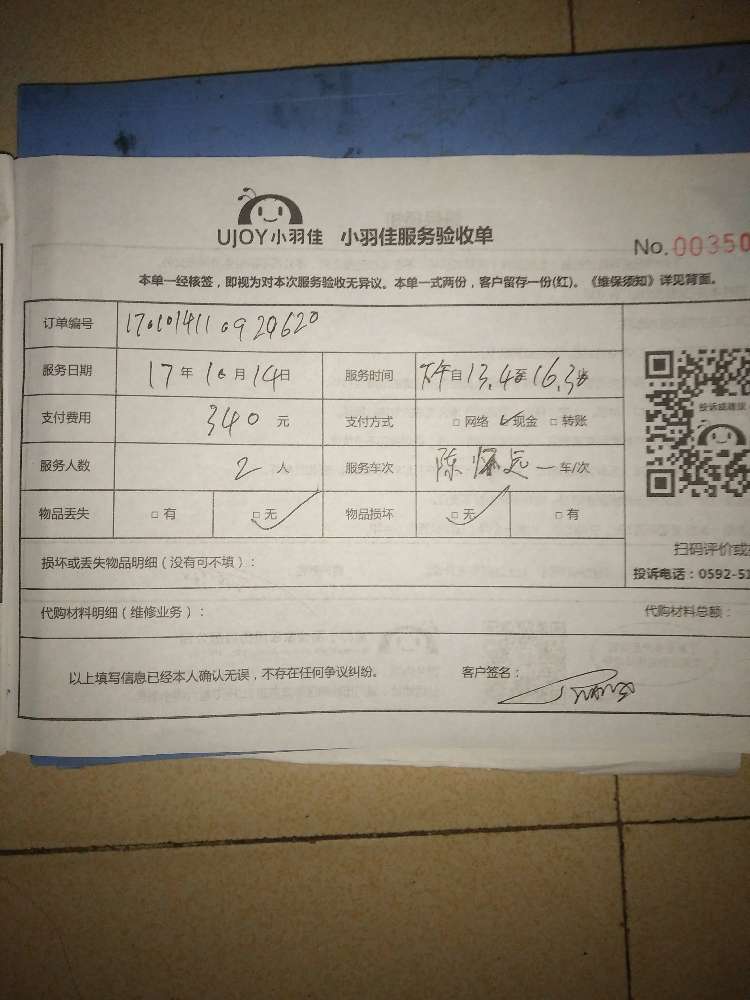 UJOY小羽佳 小羽佳服务验收单
No.00350
本单一经核签，即视为对本次服务验收无异议。本单一式两份，客户留存一份(红)。《维保须知》详见背面。
订单编号
服务日期 17年10月14日 服务时间 下午自13.4至16.3
支付费用 340元 支付方式 □网络 □现金 □转账
投诉或建议
服务人数 2人 服务车次 陈怀远一车/次
物品丢失 □有 □无 物品损坏 □无 □有
扫码评价或
损坏或丢失物品明细（没有可不填）：
投诉电话：0592-51
代购材料明细（维修业务）： 代购材料总额：
以上填写信息已经本人确认无误，不存在任何争议纠纷。 客户签名：